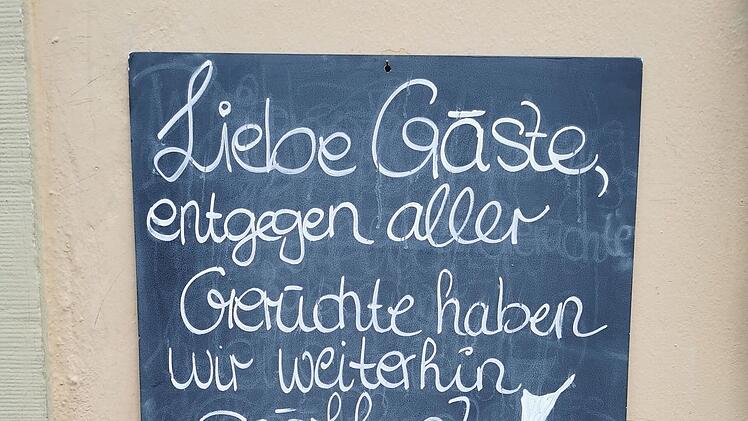 Liebe Gäste,
entgegen aller
Gerüchte haben
wir weiterhin